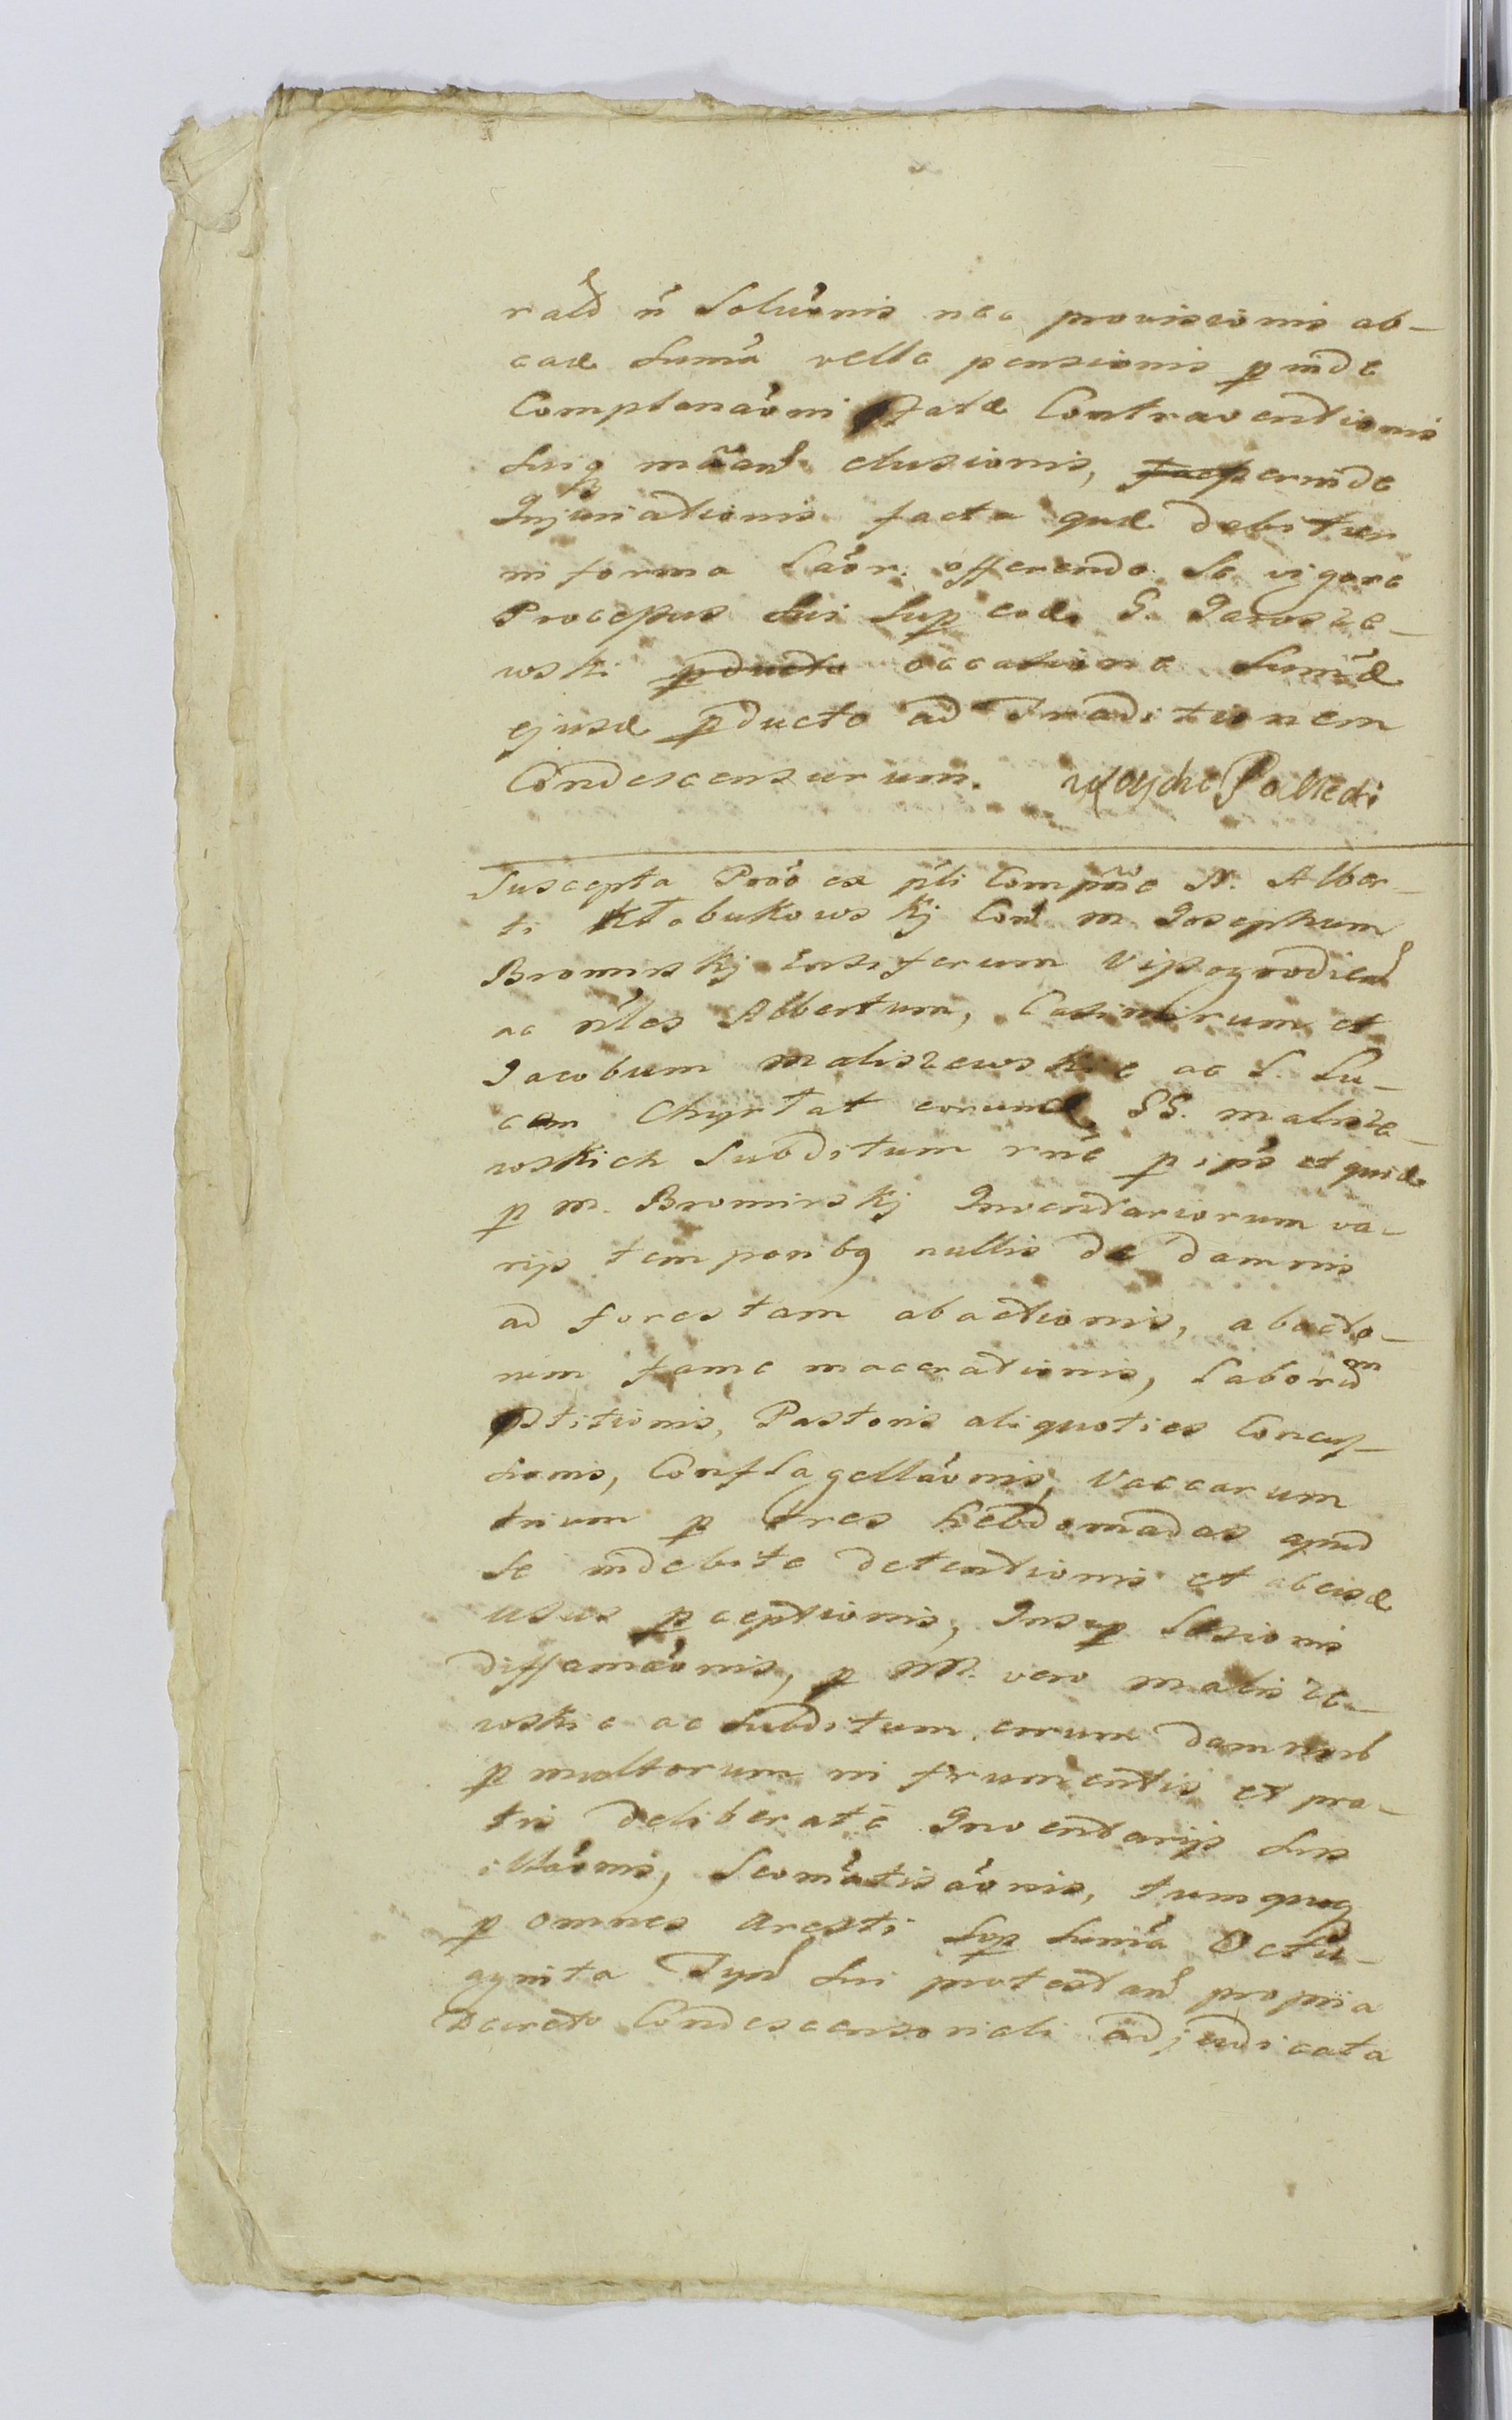 rald n̄ Soluōnis nec provisionis ab-
ead Sum̃a vella pensionis p inde
Complanaōni statæ Contraventionis
Suiq mãand elusionis, perinde
Injuriationis facta quæ debitur
in forma Laōr. offerendo se vigore
Processus sui Sup eod. G. Jarosze-
wski pducto occasione Sum̃æ
ejusd pducto ad Traditionem
Condescensurum.
Suscepta Proō ex pñli Compñe N. Alber-
ti Kłobukowskij Con̄ M. Josephum
Bromirskij Ensiferum Vissogrodien̄
ac n̄les Albertum, Casimirum et
Jacobum Maliszewskie ac L. Lu-
cam Chyrtat eorumd GG. Malisze-
wskich Subditum rn̄e p ips̄ et quid
p M. Bromirskij Inventariorum va-
rijs temporibq nullis de damnis
ad forestam abactionis, abacto-
rum fame macerationis, Laborūm
pstitionis, Pastoris aliquoties Concus-
sionis, Conflagellaōnis, Vaccarum
trium p tres hebdomadas apud
se indebite detentionis et ab eisd
usus pceptionis, Insup læsionis
diffamaōnis, p NN. vero Malisze-
wskie ac Subditum eorum damnorū
p multorum in frumentis et pra-
tis deliberatè Inventarijs suis
illaōnis, Scom̃atisaōnis, tumquoq
p omnes Aresti Sup Sum̃a Octu-
aginta Tyn̄ sui protestan̄ propria
Decreto Condescensoriali adjudicata